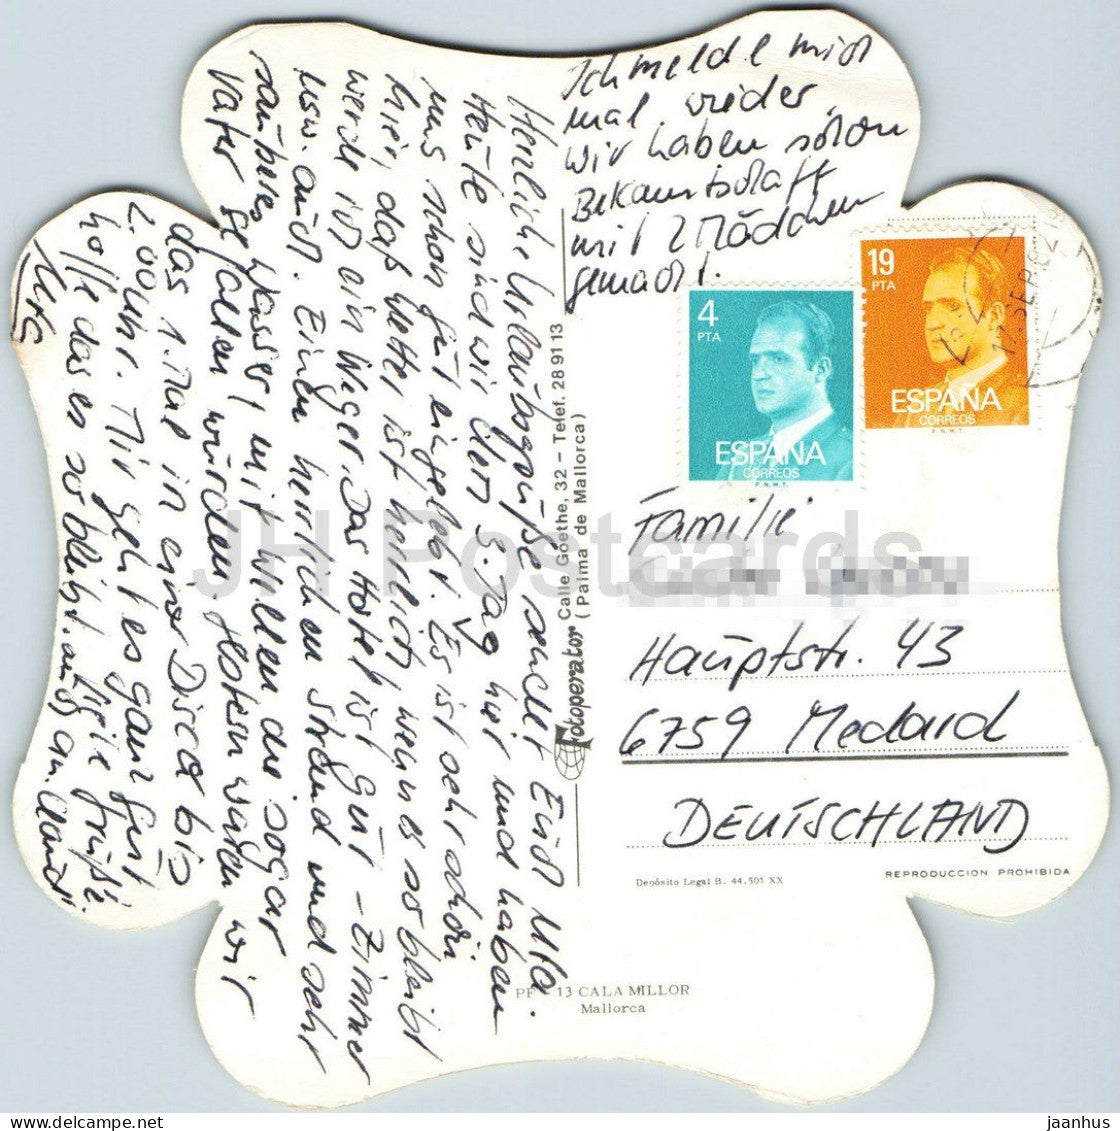 Herzliche Urlaubsgrüße sendet Euch Uta.
Heute sind wir den 3. Tag hier und haben
uns schon gut eingelebt. Es ist sehr schön
hier, das Wetter ist herrlich, wenn es so bleibt
werde ich ein Neger. Das Hotel ist gut – Zimmer
usw. auch. Einen herrlichen Strand und sehr
sauberes Wasser, mit Wellen die sogar
Vater gefallen würden. Gestern waren wir
das 1. Mal in einer Disco bis
2.00 Uhr. Mir geht es ganz gut
hoffe das es so bleibt. Viele Grüße
auch an Claudi.
Uta
Ich melde mich
mal wieder
wir haben schon
Bekanntschaft
mit 2 Mädchen
gemacht.
4
PTA
ESPAÑA
CORREOS
F.N.M.T.
19
PTA
ESPAÑA
CORREOS
F.N.M.T.
17. SEP. 82
Familie
Hauptstr. 43
6759 Medard
DEUTSCHLAND
Fotoperator Calle Goethe, 32 - Telef. 28 91 13
(Palma de Mallorca)
Depósito Legal B. 44.501 XX
REPRODUCCION PROHIBIDA
PF - 13 CALA MILLOR
Mallorca
JH Postcards
jaanhus — www.delcampe.net